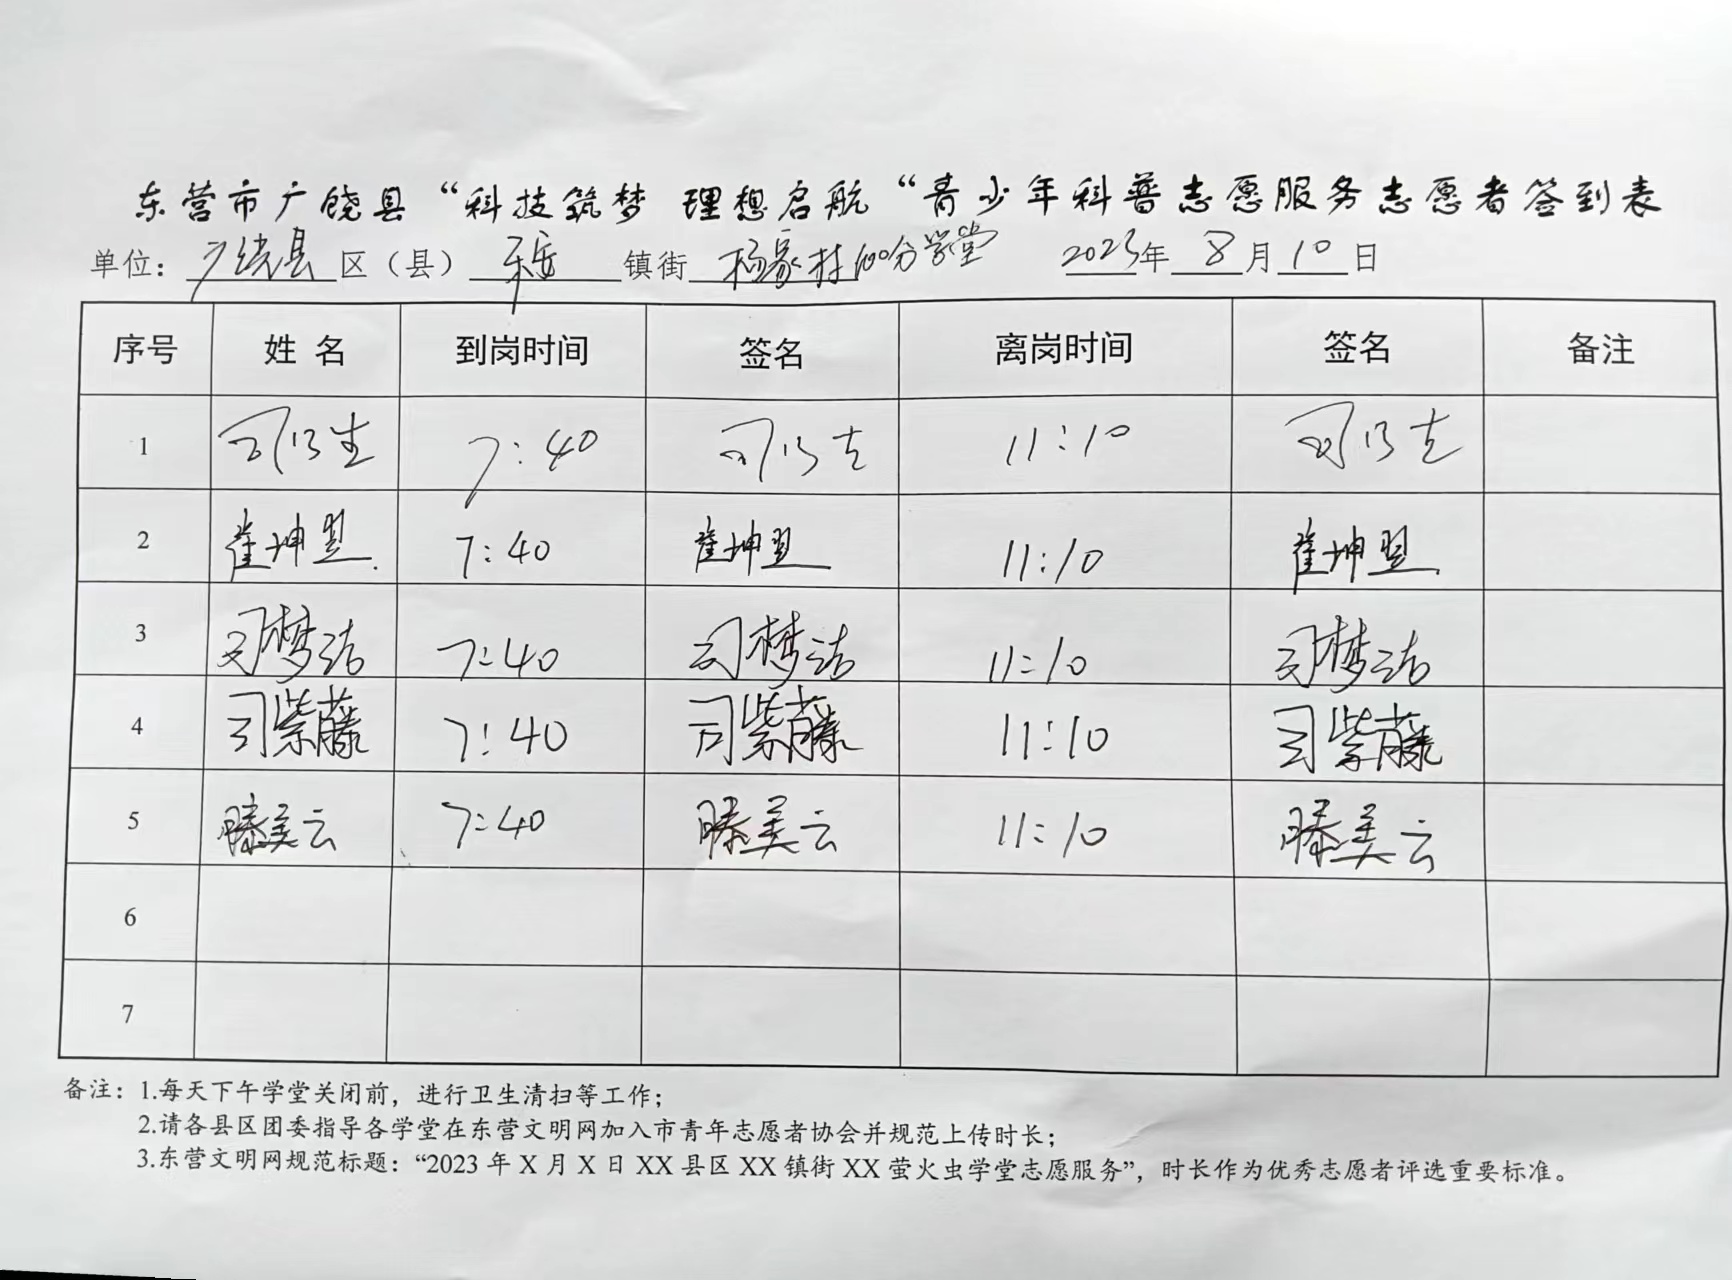 东营市广饶县“科技筑梦 理想启航“青少年科普志愿服务志愿者签到表
单位：广饶县区（县）乐安镇街杨家村100分学堂 2023年8月10日
序号 姓名 到岗时间 签名 离岗时间 签名 备注
1 7:40 11:10
2 崔坤昱 7:40 崔坤昱 11:10 崔坤昱
3 司梦洁 7:40 司梦洁 11:10 司梦洁
4 司紫藤 7:40 司紫藤 11:10 司紫藤
5 滕美云 7:40 滕美云 11:10 滕美云
6
7
备注：1.每天下午学堂关闭前，进行卫生清扫等工作；
2.请各县区团委指导各学堂在东营文明网加入市青年志愿者协会并规范上传时长；
3.东营文明网规范标题：“2023 年 X 月 X 日 XX 县区 XX 镇街 XX 萤火虫学堂志愿服务”，时长作为优秀志愿者评选重要标准。